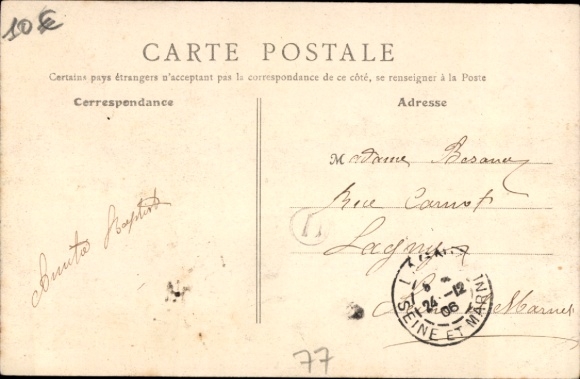 10€
CARTE POSTALE
Certains pays étrangers n'acceptant pas la correspondance de ce côté, se renseigner à la Poste
Correspondance
Adresse
Madame
Rue Carnot
Lagny
Marne
24 -12
06
SEINE ET MARNE
77